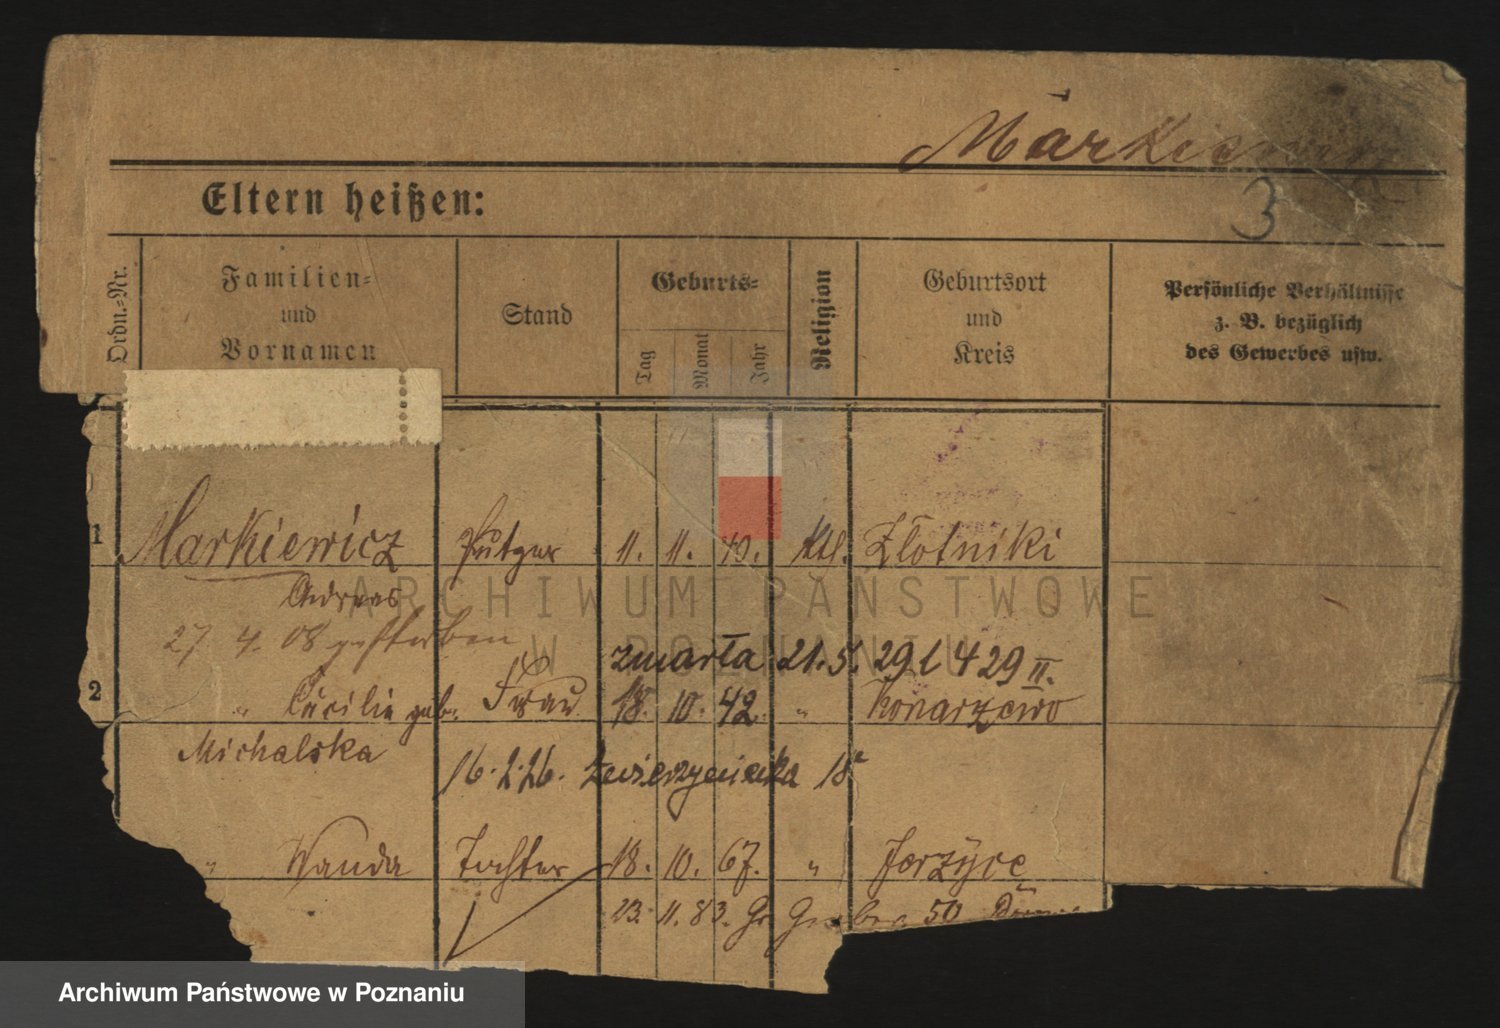 Markiewicz
3
Eltern heißen:
Ordn.=Nr.
Familien=
und
Vornamen
Stand
Geburts=
Tag
Monat
Jahr
Religion
Geburtsort
und
Kreis
Persönliche Verhältnisse
z. B. bezüglich
des Gewerbes usw.
1 Markiewicz 11. 11. 40. Ktl. Złotniki
Andreas
ARCHIWUM PAŃSTWOWE
W POZNANIU
27 4. 08 gestorben
zmarła 21.5. 29 429 II.
2 " Cäcilie geb. Frau 18. 10. 42. " Konarzewo
Michalska
16.2.26. Zwierzyniecka 18
" Wanda Tochter 18. 10. 67. " Jerzyce
23. 11. 83. Gr Gerber 50
Archiwum Państwowe w Poznaniu